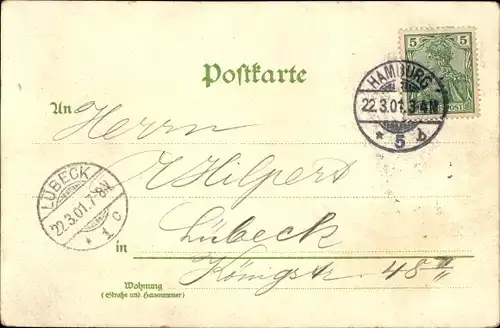 5 5
Postkarte
HAMBURG
22.3.01. 3-4N
* 5 b
An Herrn
Hilpert
LÜBECK
22.3.01. 7-8N
* 1 c
in Lübeck
Königstr. 48
Wohnung
(Straße und Hausnummer)